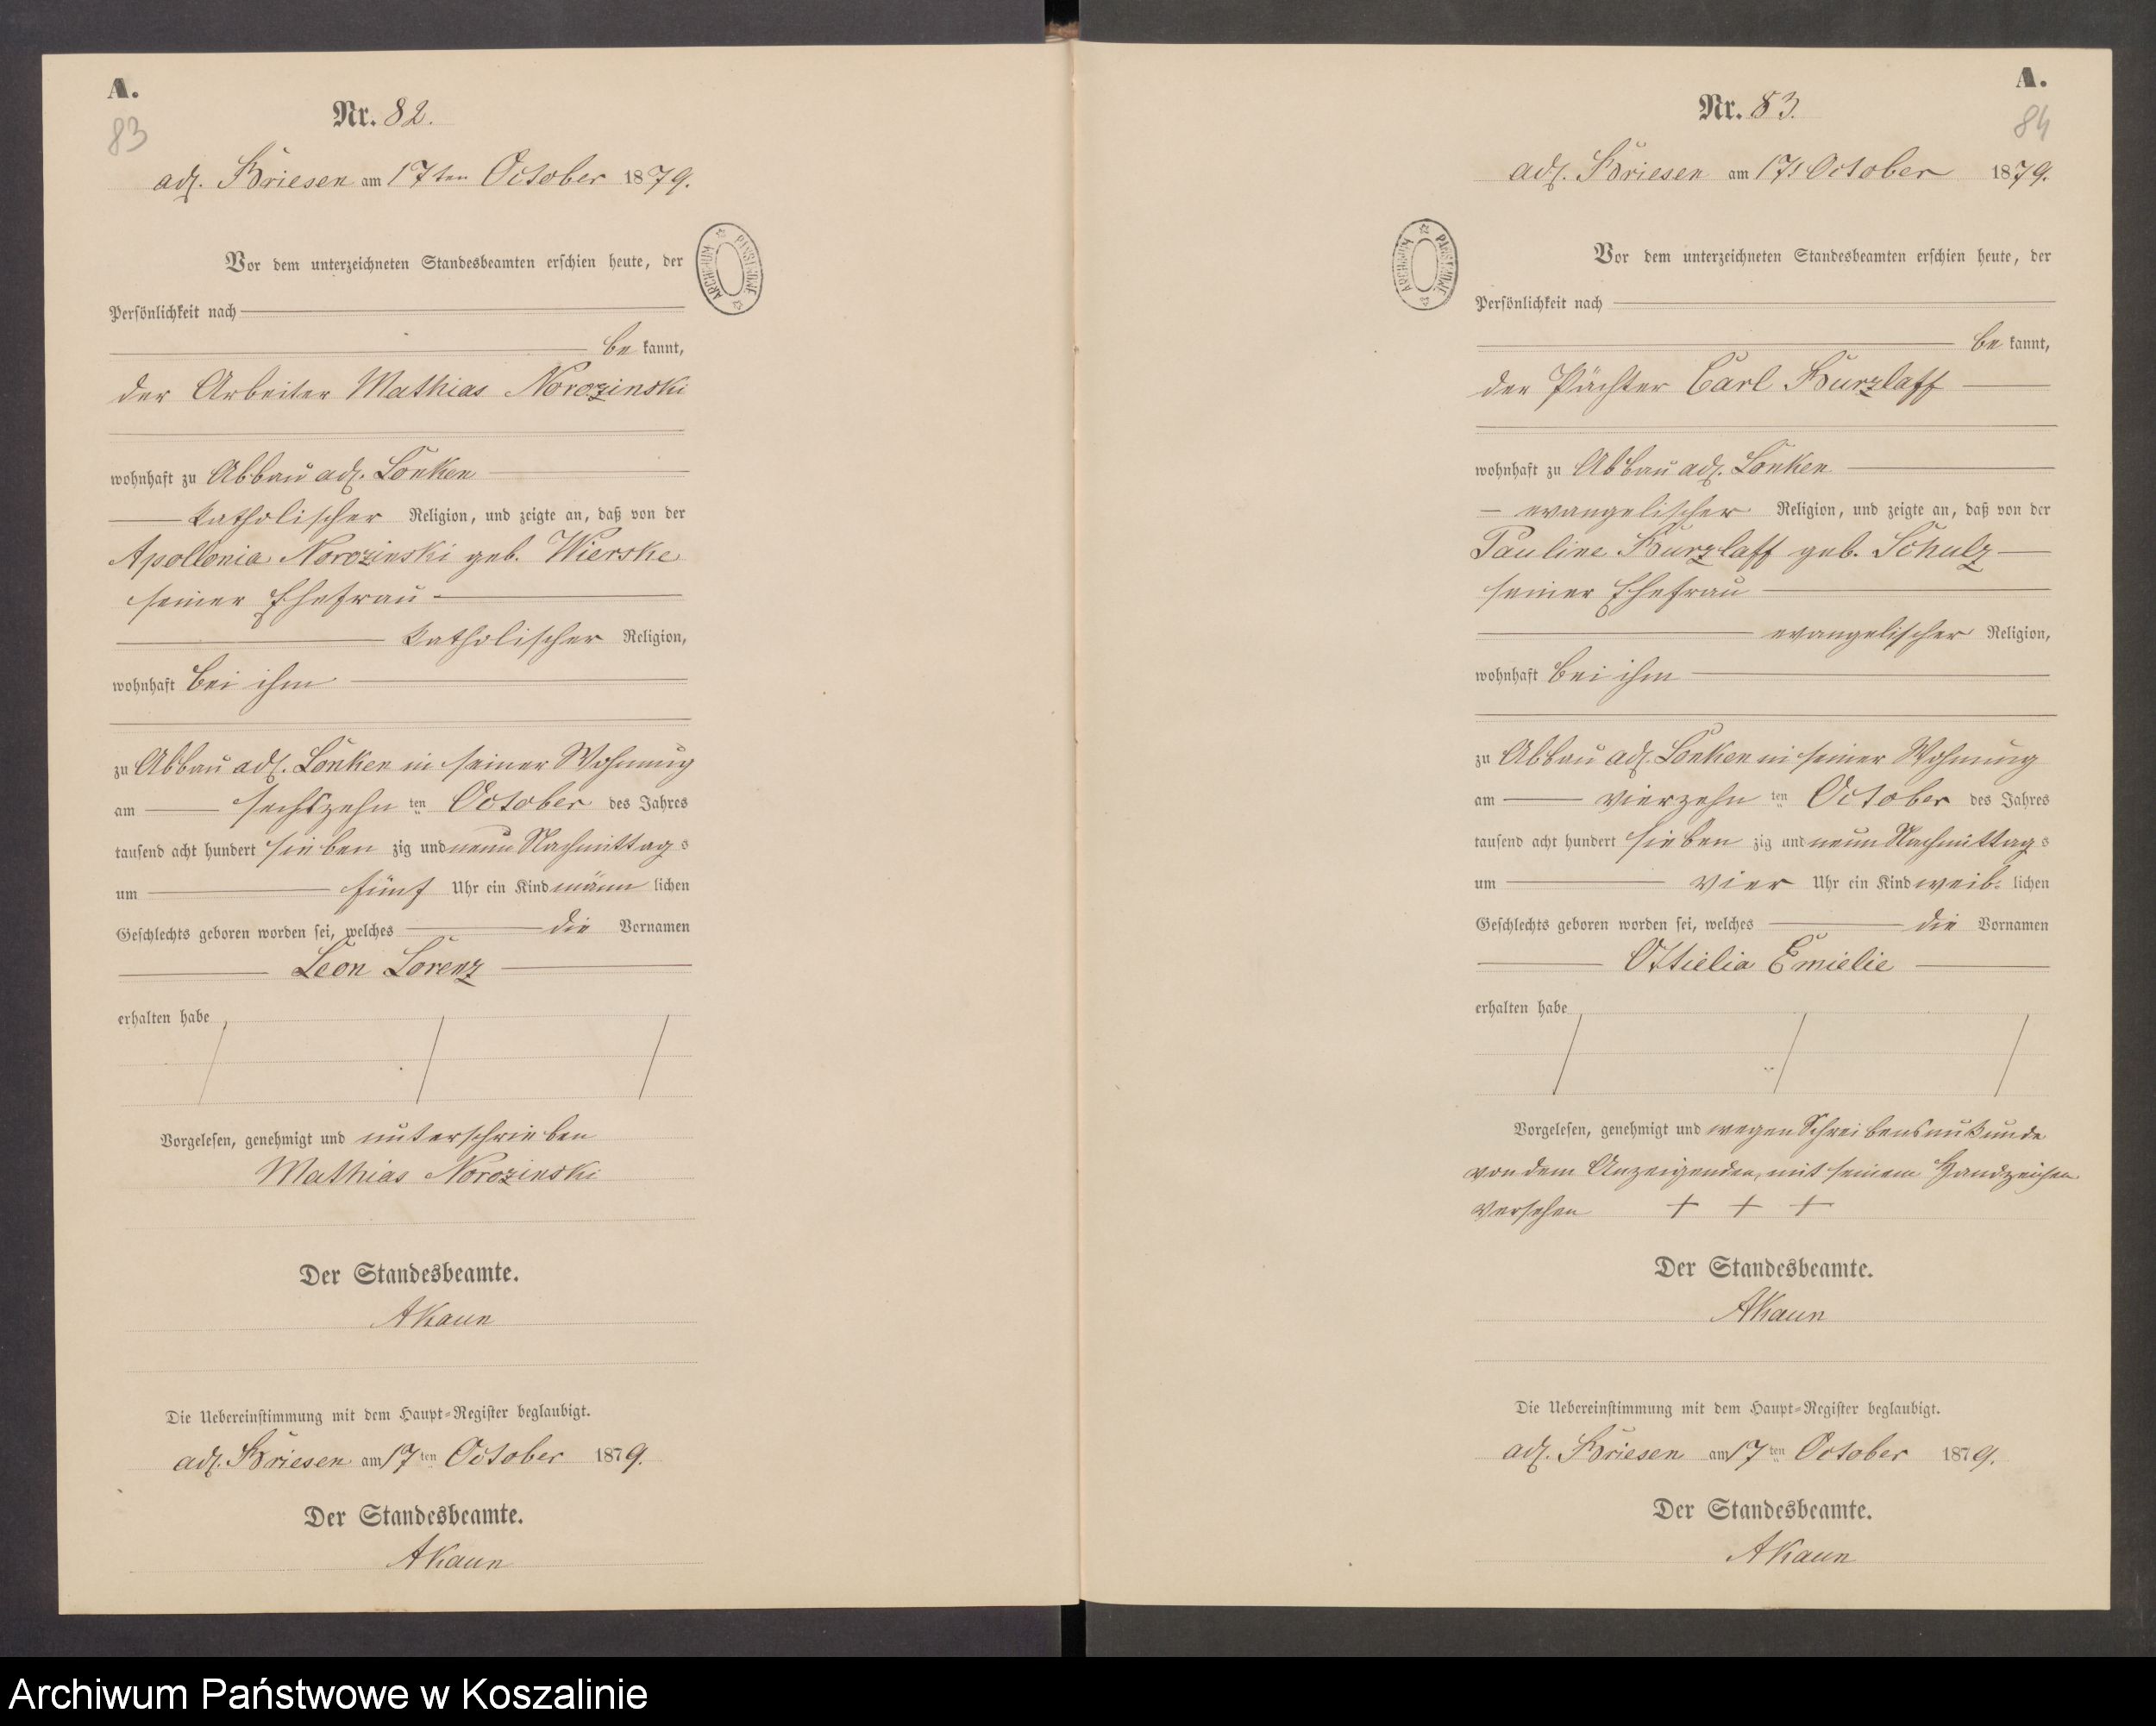 A.
83
Nr. 82.
adl. Briesen am 17ten October 1879.
Vor dem unterzeichneten Standesbeamten erschien heute, der
Persönlichkeit nach
be kannt,
der Arbeiter Mathias Norozinski
wohnhaft zu Abbau adl. Lonken
katholischer Religion, und zeigte an, daß von der
Apollonia Norozinski geb. Wierske
seiner Ehefrau
katholischer Religion,
wohnhaft bei ihm
zu Abbau adl. Lonken in seiner Wohnung
am sechszehn ten October des Jahres
tausend acht hundert sieben zig und neun Nachmittag s
um fünf Uhr ein Kind männ lichen
Geschlechts geboren worden sei, welches die Vornamen
Leon Lorenz
erhalten habe
Vorgelesen, genehmigt und unterschrieben
Mathias Norozinski
Der Standesbeamte.
AKaun
Die Uebereinstimmung mit dem Haupt-Register beglaubigt.
adl. Briesen am 17ten October 1879.
Der Standesbeamte.
AKaun
ARCHIWUM PAŃSTWOWE
A.
84
Nr. 83.
adl. Briesen am 17t October 1879.
Vor dem unterzeichneten Standesbeamten erschien heute, der
Persönlichkeit nach
be kannt,
der Pächter Carl Burzlaff
wohnhaft zu Abbau adl. Lonken
evangelischer Religion, und zeigte an, daß von der
Pauline Burzlaff geb. Schulz
seiner Ehefrau
evangelischer Religion,
wohnhaft bei ihm
zu Abbau adl. Lonken in seiner Wohnung
am vierzehn ten October des Jahres
tausend acht hundert sieben zig und neun Nachmittag s
um vier Uhr ein Kind weib- lichen
Geschlechts geboren worden sei, welches die Vornamen
Ottielia Emielie
erhalten habe
Vorgelesen, genehmigt und wegen Schreibensunkunde
von dem Anzeigenden, mit seinem Handzeichen
versehen + + +
Der Standesbeamte.
AKaun
Die Uebereinstimmung mit dem Haupt-Register beglaubigt.
adl. Briesen am 17ten October 1879.
Der Standesbeamte.
AKaun
ARCHIWUM PAŃSTWOWE
Archiwum Państwowe w Koszalinie